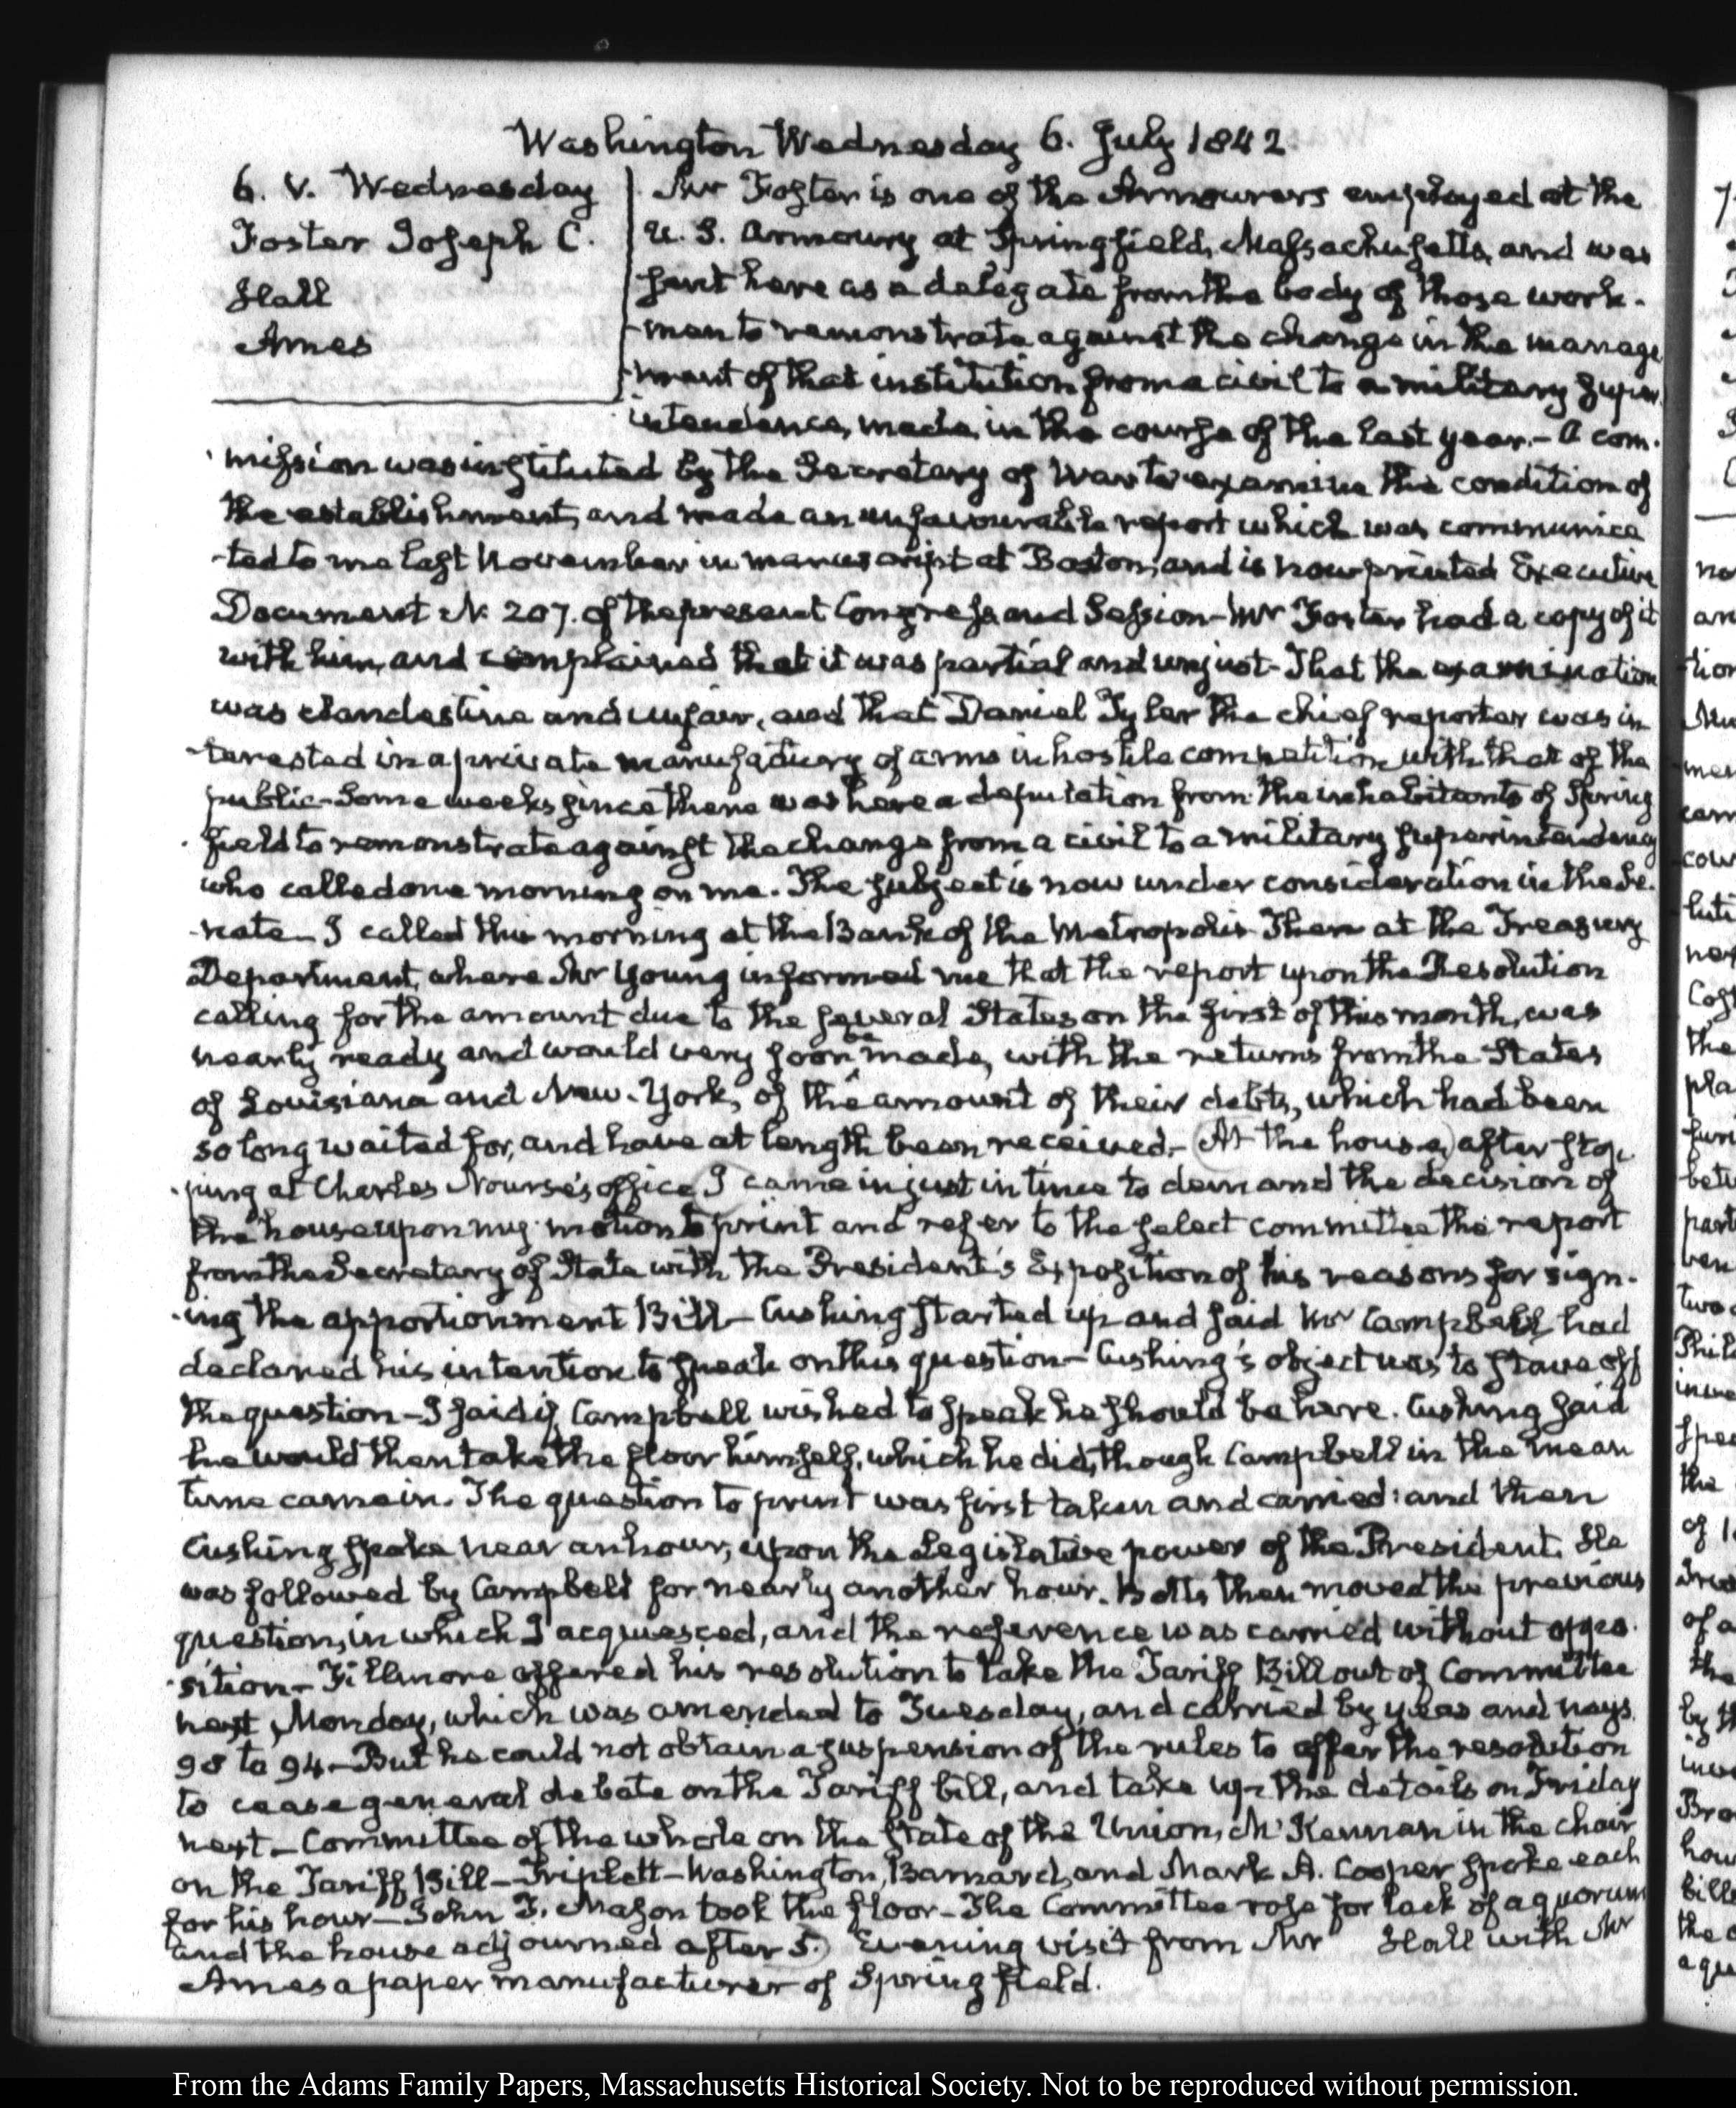 Washington Wednesday 6. July 1842.
6. V. Wednesday
Foster Joseph C.
Hall
Ames
Mr Foster is one of the Armourers employed at the
U. S. Armoury at Springfield, Massachusetts, and was
sent here as a delegate from the body of those work-
-men to remonstrate against the change in the manage
-ment of that institution from a civil to a military super
intendence, made, in the course of the last year.- A com-
mission was instituted by the Secretary of War to examine the condition of
the establishment, and made an unfavourable report which was communica
-ted to me last November in manuscript at Boston, and is now printed Executive
Document N. 207. of the present Congress and Session- Mr Foster had a copy of it
with him, and complained that it was partial and unjust- That the examination
was clandestine and unfair, and that Daniel Tyler the chief reporter was in
-terested in a private manufactury of arms in hostile competition with that of the
public- Some weeks since there was here a deputation from the inhabitants of Spring
-field to remonstrate against the change from a civil to a military superintendency
who called one morning on me. The subject is now under consideration in the Se-
-nate- I called this morning at the Bank of the Metropolis Then at the Treasury
Department, where Mr Young informed me that the report upon the Resolution
calling for the amount due to the several States on the first of this month, was
nearly ready and would very soon be made, with the returns from the States
of Louisiana and New-York, of the amount of their debts, which had been
so long waited for, and have at length been received.- (At the house) after stop-
-ping at Charles Nourse's office I came in just in time to demand the decision of
the house upon my motion to print and refer to the select committee the report
from the Secretary of State with the President's Exposition of his reasons for sign-
-ing the apportionment Bill- Cushing started up and said Mr Campbell had
declared his intention to speak on this question- Cushing's object was to stave off
the question- I said if Campbell wished to speak he should be here. Cushing said
he would then take the floor himself, which he did, though Campbell in the mean
time came in. The question to print was first taken and carried: and then
Cushing spoke near an hour, upon the Legislative power of the President. He
was followed by Campbell for nearly another hour. Botts then moved the previous
question, in which I acquiesced, and the reference was carried without oppo-
-sition- Fillmore offered his resolution to take the Tariff Bill out of Committee
next Monday, which was amended to Tuesday, and carried by yeas and nays
98 to 94- But he could not obtain a suspension of the rules to offer the resolution
to cease general debate on the Tariff bill, and take up the details on Friday
next- Committee of the whole on the state of the Union, McKennan in the chair
on the Tariff Bill- Triplett- Washington, Barnard, and Mark A. Cooper spoke each
for his hour- John T. Mason took the floor- The Committee rose for lack of a quorum
and the house adjourned after 5.) Evening visit from Mr Hall with Mr
Ames a paper manufacturer of Springfield.
From the Adams Family Papers, Massachusetts Historical Society. Not to be reproduced without permission.